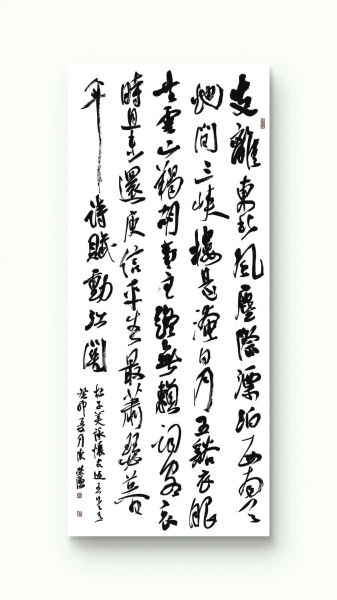 支離東北風塵際漂泊西南天
地間三峽樓臺淹日月五谿衣服
共雲山羯胡事主終無賴詞客哀
時且未還庾信平生最蕭瑟暮
年詩賦動江關
杜子美詠懷古迹五首之一
癸卯夏月